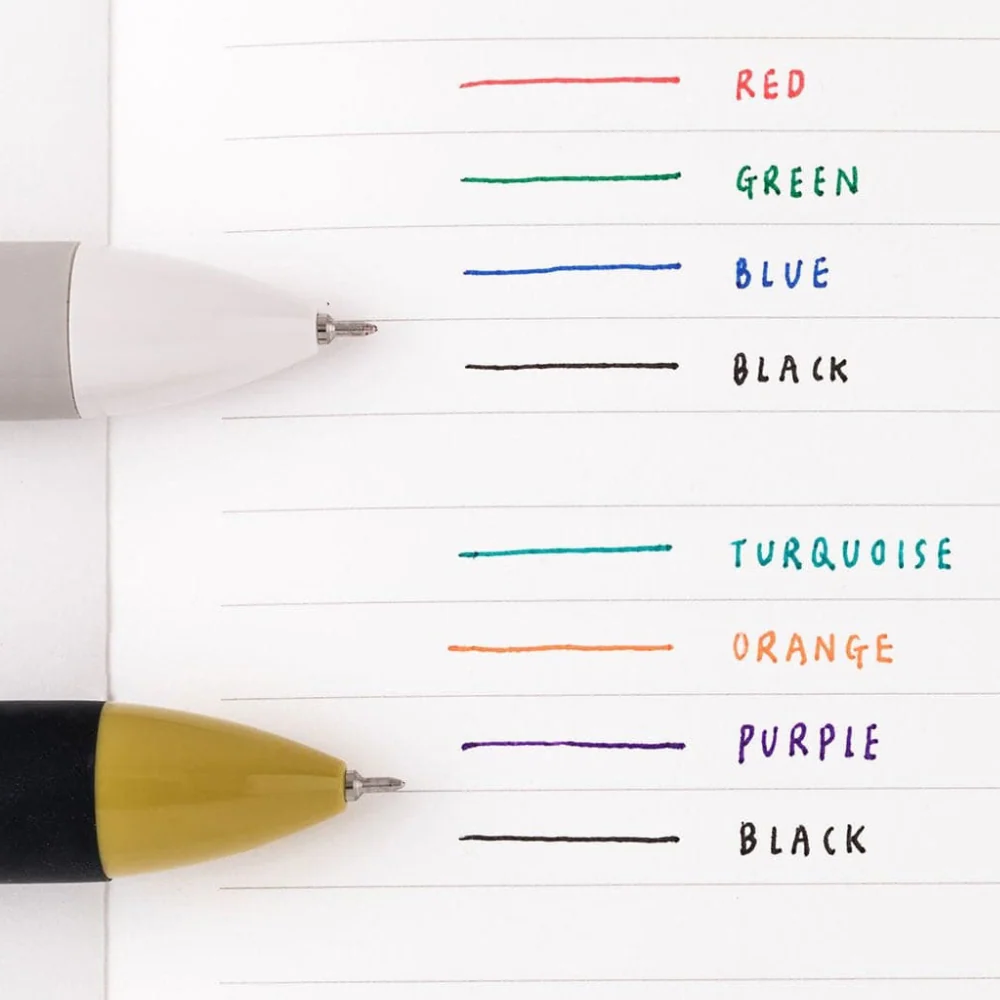 RED
GREEN
BLUE
BLACK
TURQUOISE
ORANGE
PURPLE
BLACK